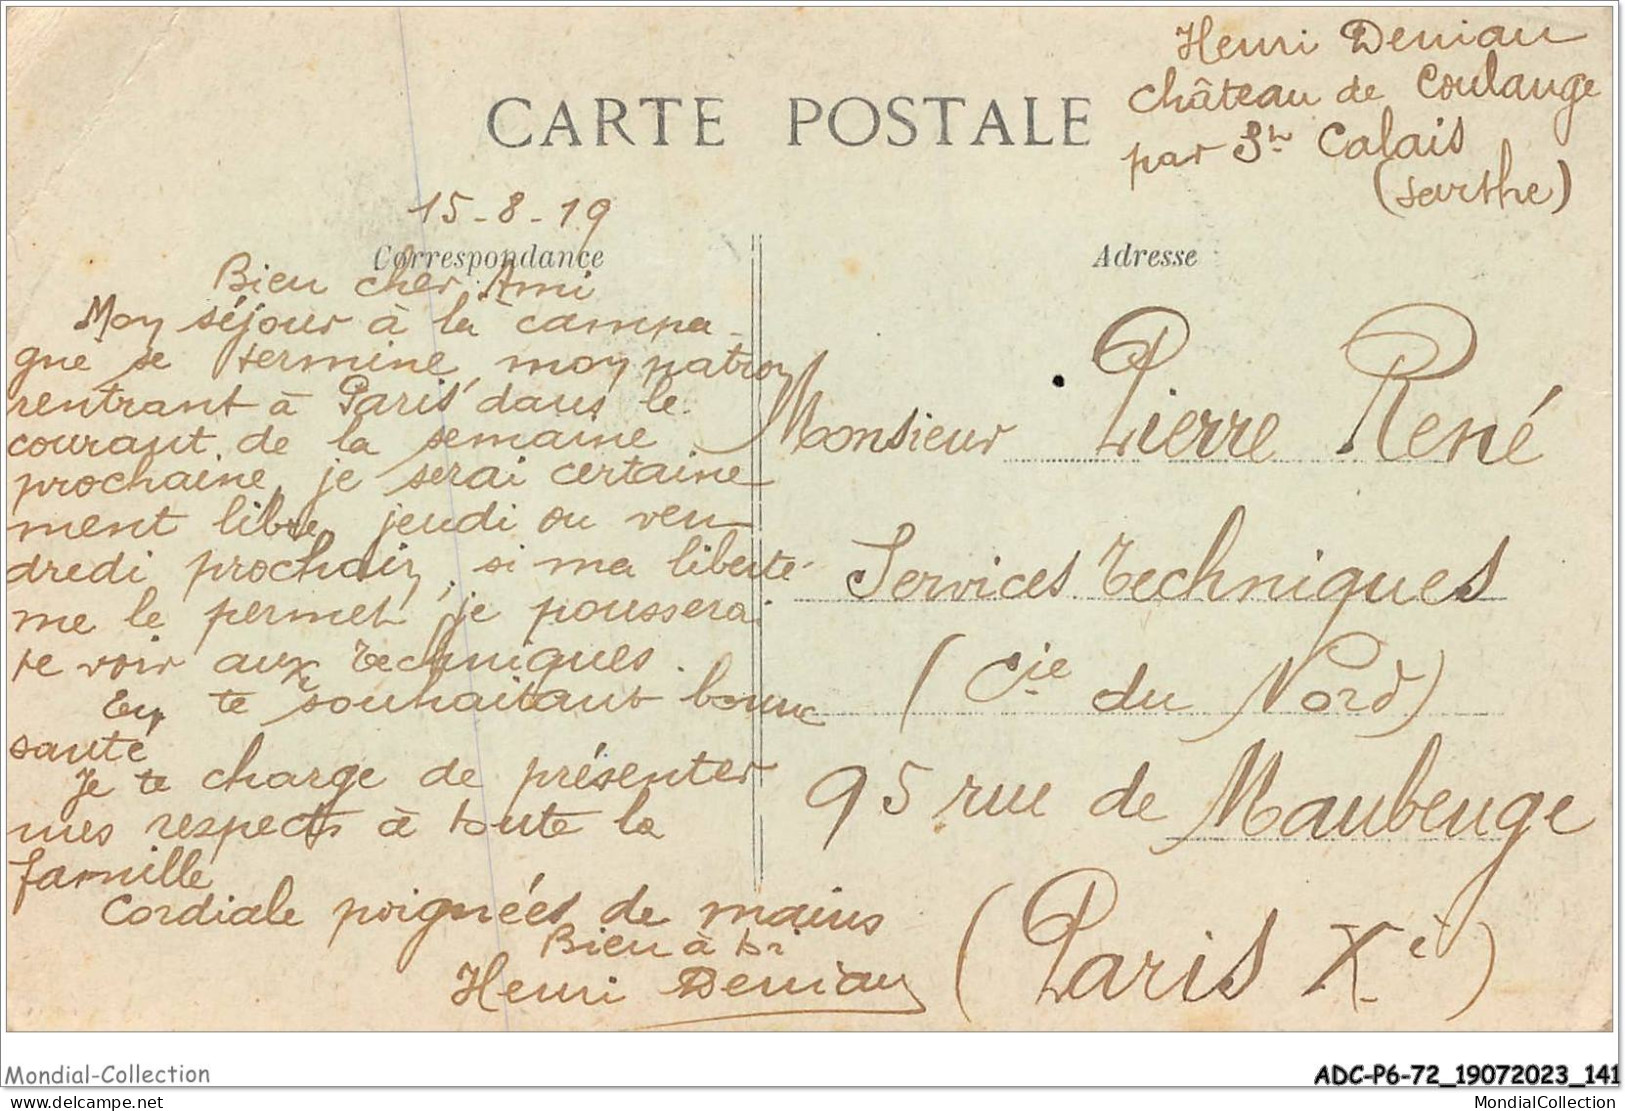 Henri Deniau
château de Coulange
par St Calais
(Sarthe)
CARTE POSTALE
15-8-19
Correspondance
Adresse
Bien cher Ami
Mon séjour à la campa-
gne se termine, mon patron
rentrant à Paris dans le
courant de la semaine
prochaine, je serai certaine
ment libre, jeudi ou ven
dredi prochain, si ma liberté
me le permet, je pousserai
te voir aux Techniques.
En te souhaitant bonne
santé
Je te charge de présenter
mes respects à toute la
famille
Cordiale poignées de mains
Bien à toi
Henri Deniau
Monsieur Pierre René
Services Techniques
(Cie du Nord)
95 rue de Maubeuge
(Paris Xe)
Mondial-Collection
ADC-P6-72_19072023_141
delcampe.net
MondialCollection